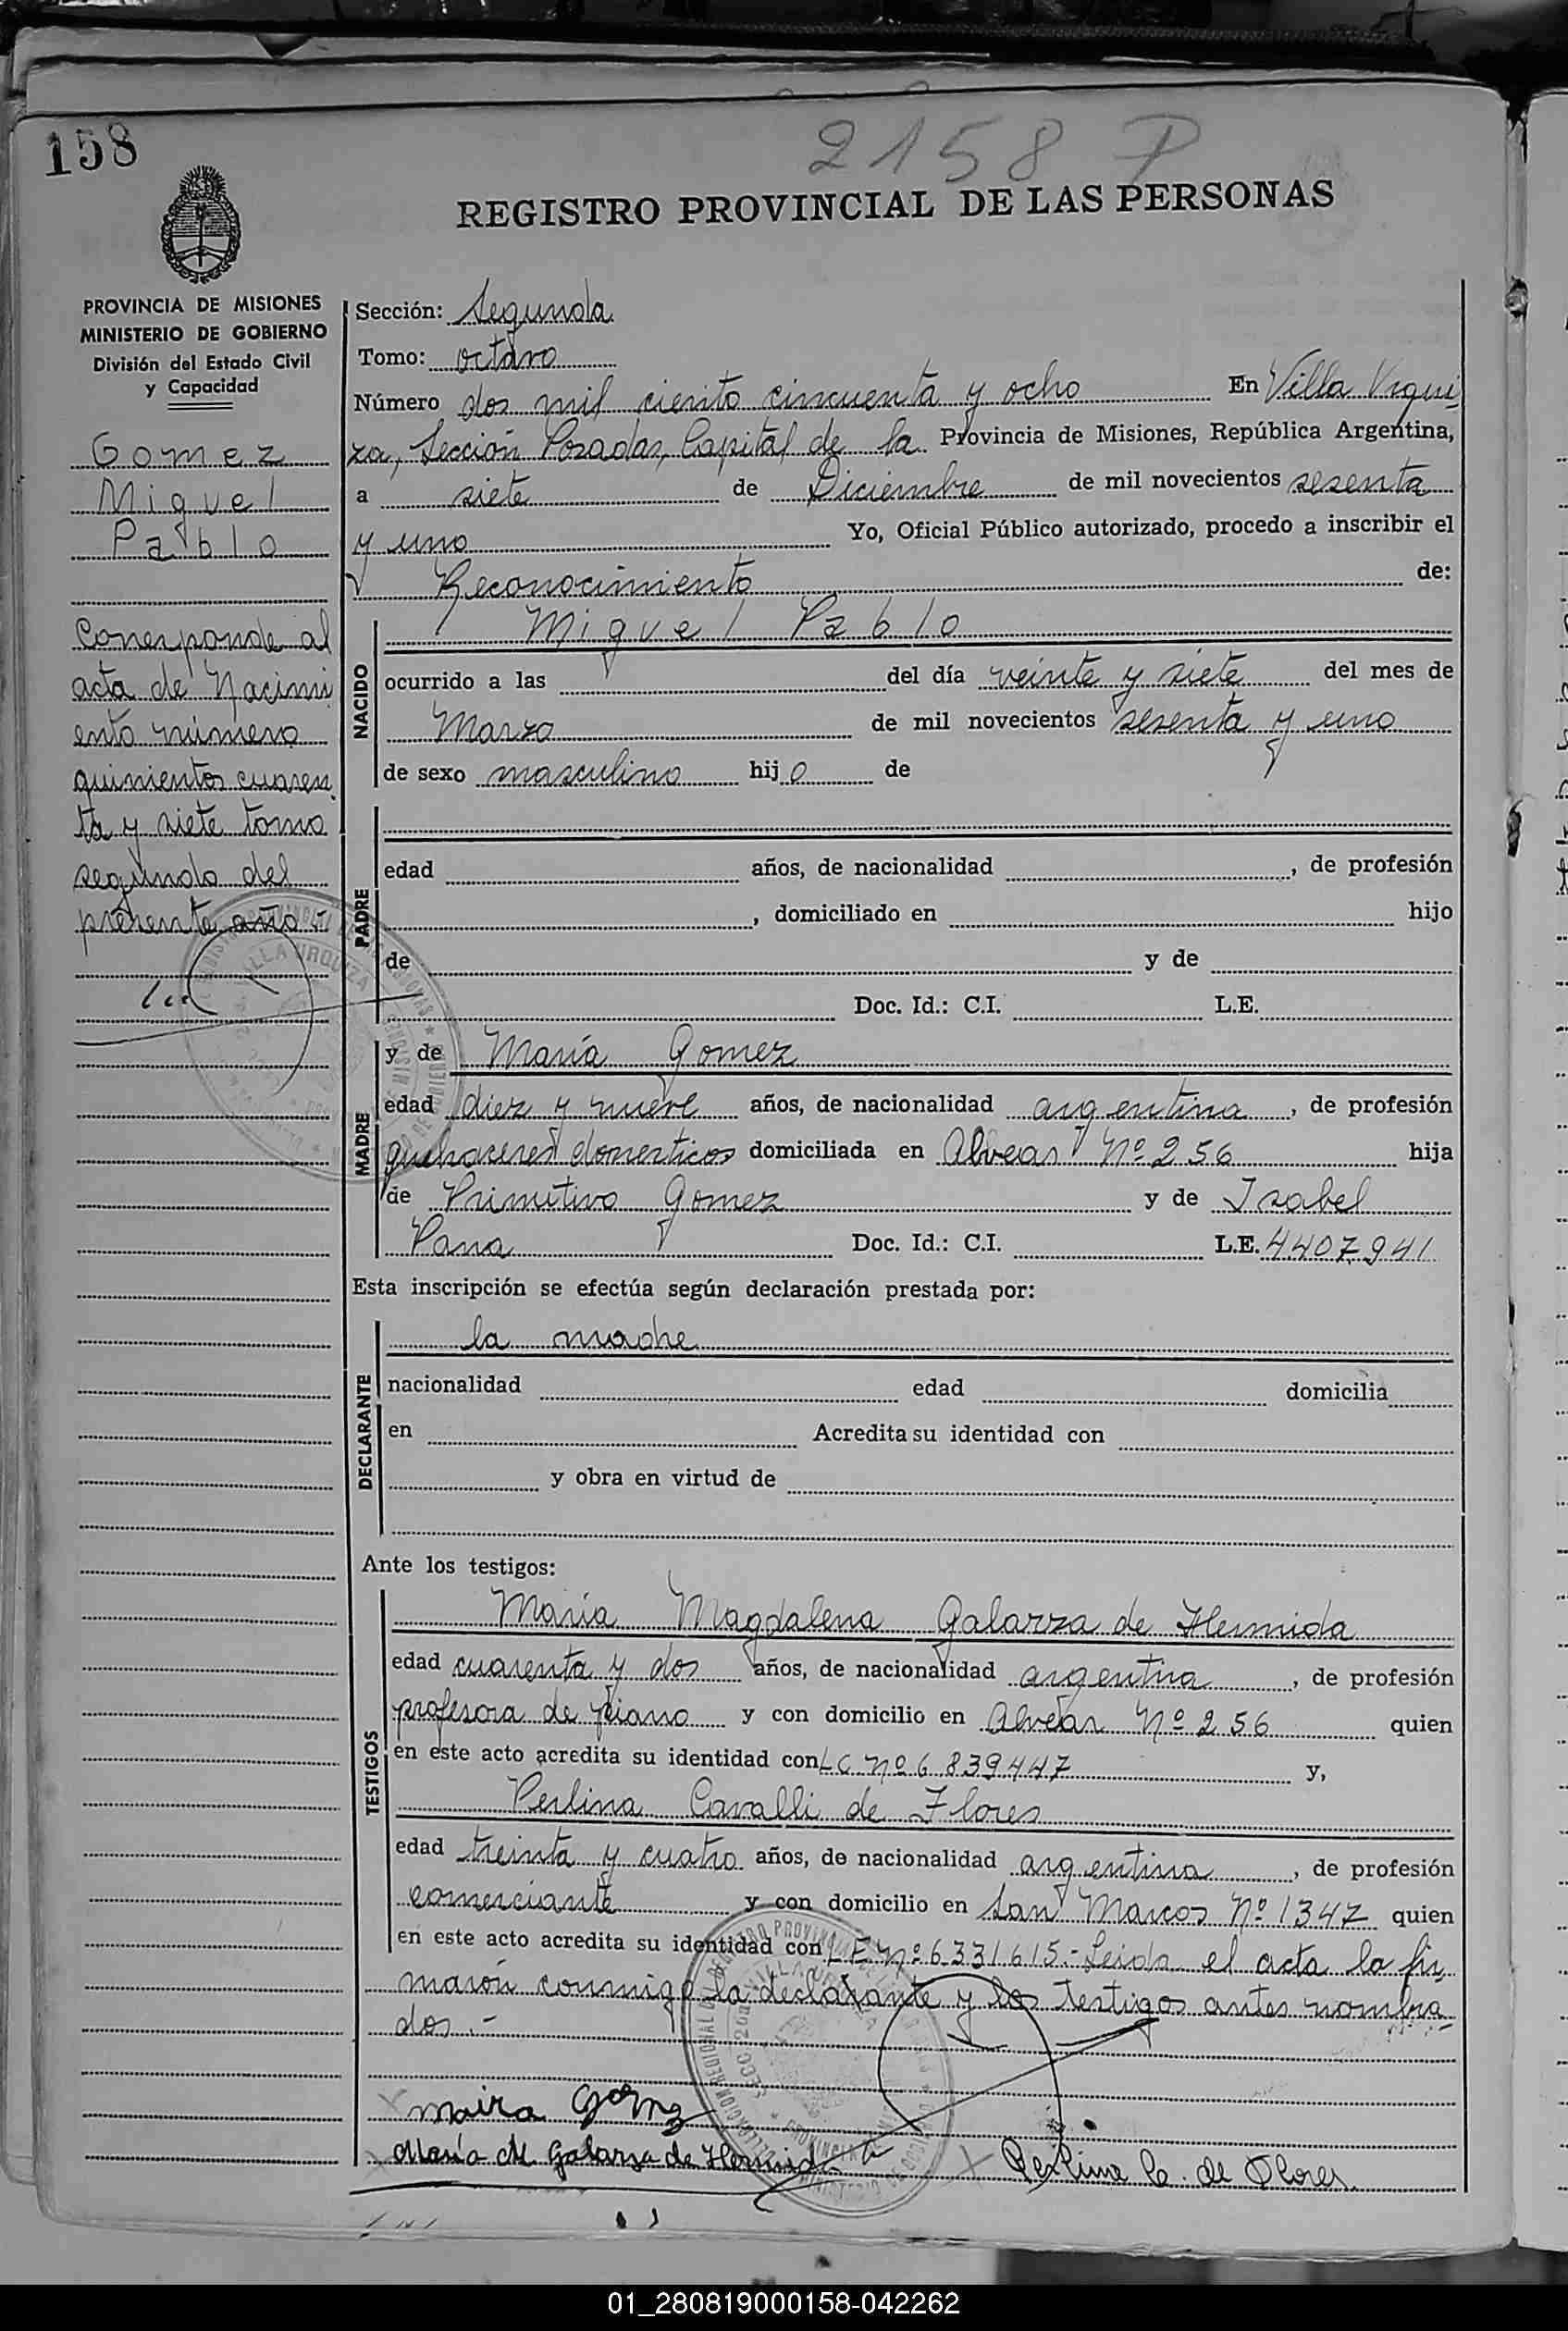 158
2158 P
REGISTRO PROVINCIAL DE LAS PERSONAS
PROVINCIA DE MISIONES
MINISTERIO DE GOBIERNO
División del Estado Civil
y Capacidad
Gomez
Miguel
Pablo
Corresponde al
acta de Nacimi
ento número
quinientos cuaren
ta y siete tomo
segundo del
presente año.-
Sección: Segunda
Tomo: octavo
Número dos mil ciento cincuenta y ocho En Villa Urqui
za, Sección Posadas, Capital de la Provincia de Misiones, República Argentina,
a siete de Diciembre de mil novecientos sesenta
y uno Yo, Oficial Público autorizado, procedo a inscribir el
Reconocimiento de:
NACIDO
Miguel Pablo
ocurrido a las del día veinte y siete del mes de
Marzo de mil novecientos sesenta y uno
de sexo masculino hijo de
PADRE
edad años, de nacionalidad , de profesión
, domiciliado en hijo
de y de
Doc. Id.: C.I. L.E.
MADRE
y de María Gomez
edad diez y nueve años, de nacionalidad argentina , de profesión
quehaceres domesticos domiciliada en Alvear Nº 256 hija
de Primitivo Gomez y de Isabel
Doc. Id.: C.I. L.E. 4407941
Esta inscripción se efectúa según declaración prestada por:
DECLARANTE
la madre
nacionalidad edad domicilia
en Acredita su identidad con
y obra en virtud de
Ante los testigos:
TESTIGOS
María Magdalena Galarza de Hermida
edad cuarenta y dos años, de nacionalidad argentina , de profesión
profesora de piano y con domicilio en Alvear Nº 256 quien
en este acto acredita su identidad con LC Nº 6839447 y,
Perlina Cavalli de Flores
edad treinta y cuatro años, de nacionalidad argentina , de profesión
comerciante y con domicilio en San Marcos Nº 1347 quien
en este acto acredita su identidad con LE Nº 6.331615.- Leida el acta la fir
maron conmigo la declarante y los testigos antes nombra
dos.-
maira Gomz
María M Galarza de Hermida
Perlina C. de Flores
01_280819000158-042262